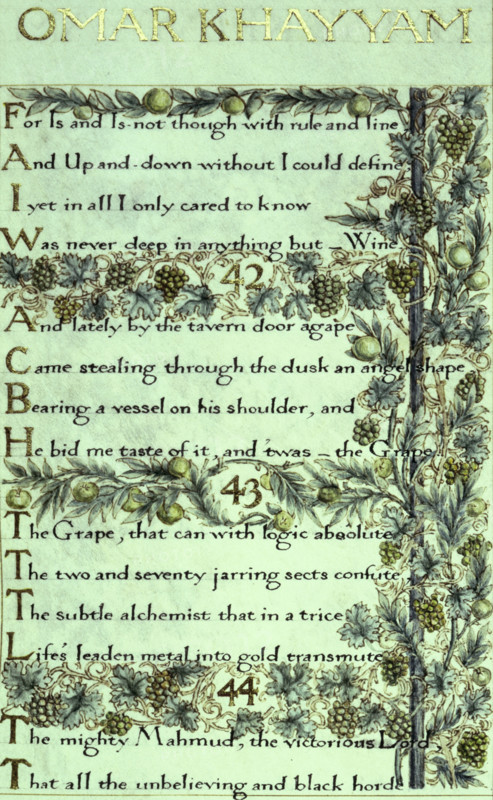 OMAR KHAYYAM
For Is and Is-not though with rule and line
And Up and-down without I could define
I yet in all I only cared to know
Was never deep in anything but – Wine
42
And lately by the tavern door agape
Came stealing through the dusk an angel shape
Bearing a vessel on his shoulder, and
He bid me taste of it, and 'twas – the Grape.
43
The Grape, that can with logic absolute
The two and seventy jarring sects confute,
The subtle alchemist that in a trice
Life's leaden metal into gold transmute
44
The mighty Mahmud, the victorious Lord,
That all the unbelieving and black horde